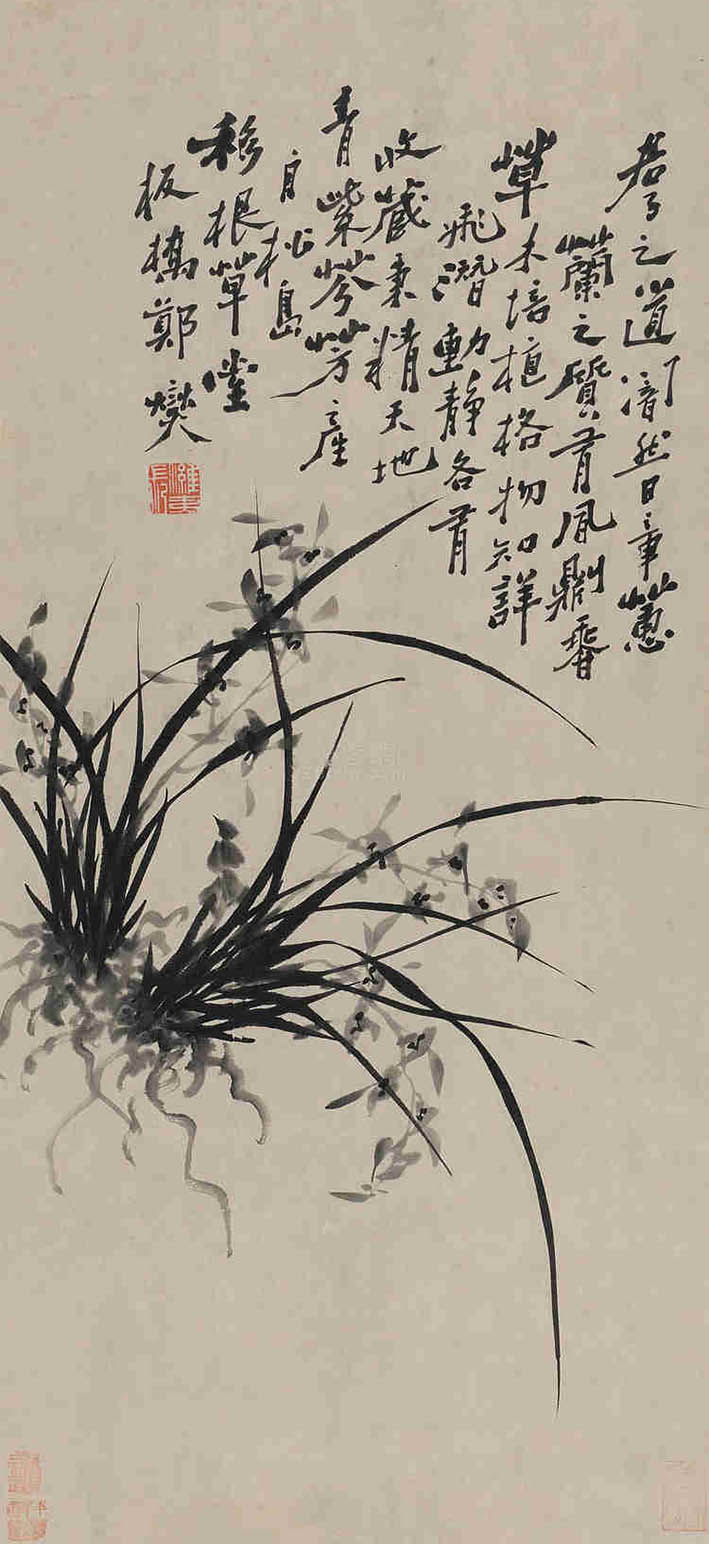 君子之道闇然日章蕙
蘭之質有風則香
草木培植格物知詳
飛潛動靜各有
收藏秉精天地
青紫芬芳產
自松島
移根草堂
板橋鄭燮